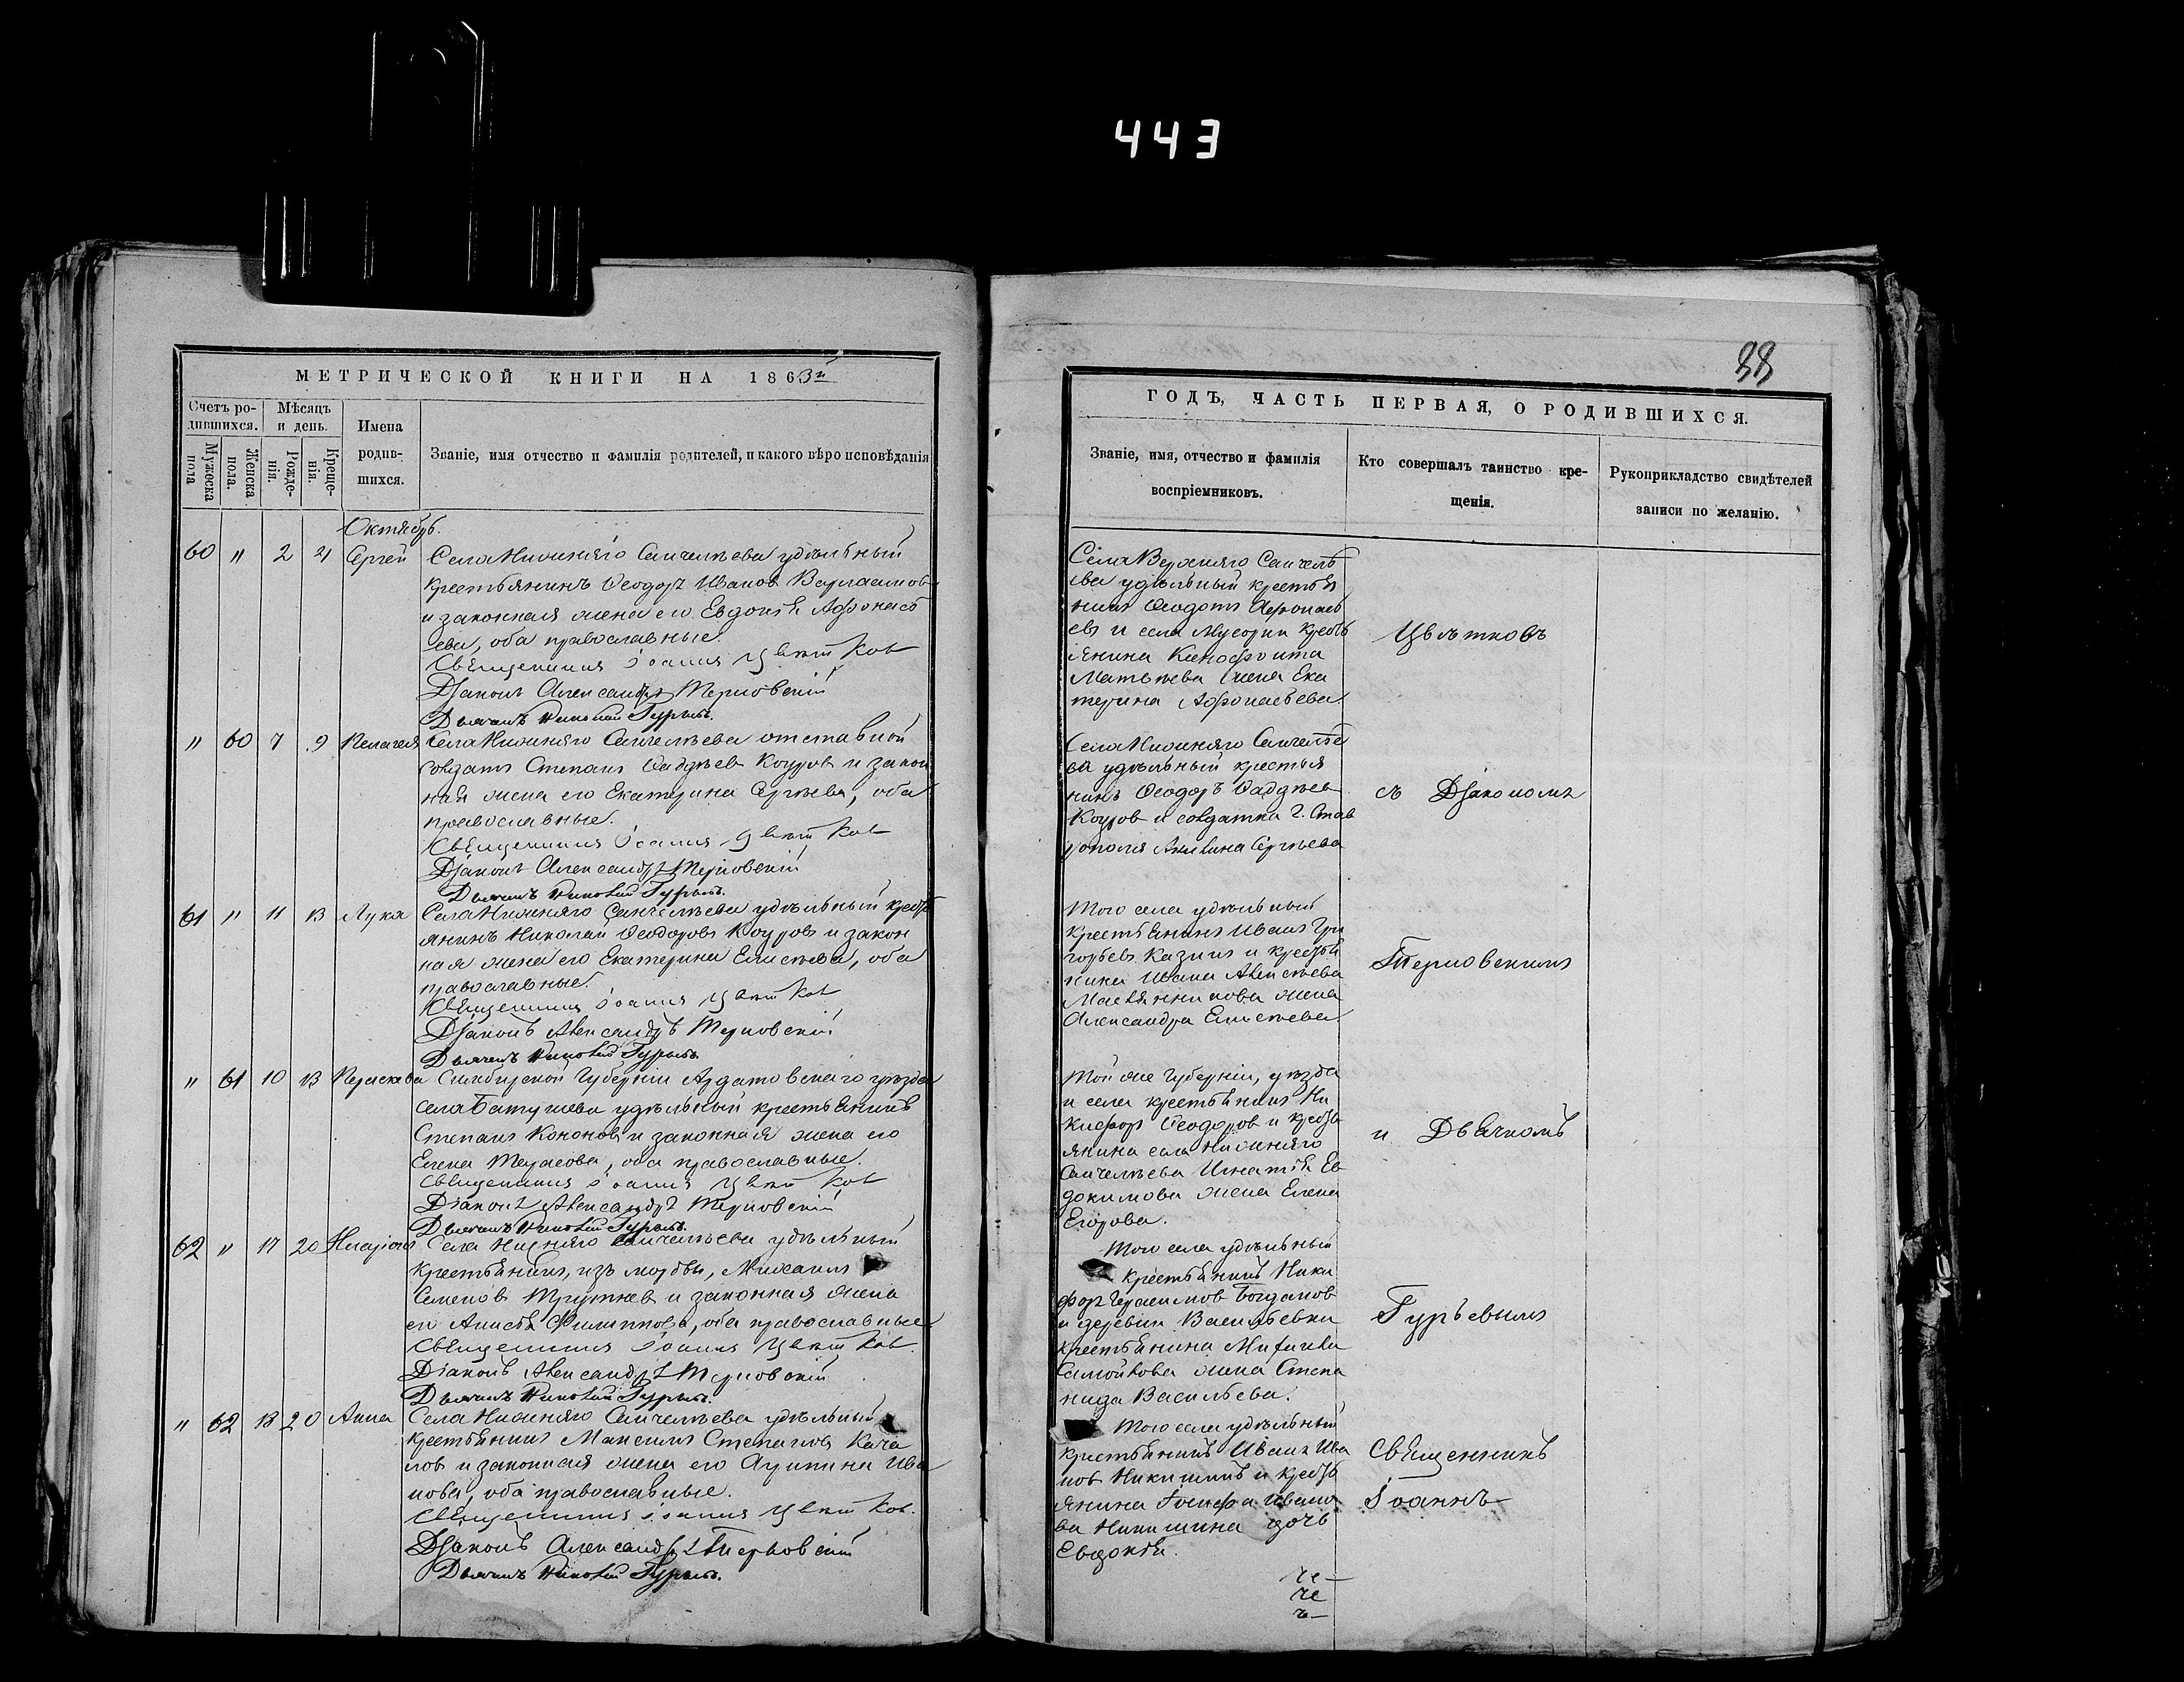 443
МЕТРИЧЕСКОЙ КНИГИ НА 1863й
Счетъ ро-
дившихся.
Мѣсяцъ
и день.
Имена
родив-
шихся.
Званіе, имя отчество и фамилія родителей, и какого вѣроисповѣданія
Мужеска
пола
Женска
пола.
Рожде-
нія.
Креще-
нія.
Октябрь.
60 " 2 4 Сергей Села Нижняго Санчелѣева удѣльный
крестьянинъ Ѳеодоръ Иванов Варлаамов
и законная жена его Евдокія Афонась
ева, оба православные.
Священникъ Іоаннъ Цвѣтков
Діаконъ Александръ Терновскій
Дьячекъ Николай Гурьевъ.
" 60 7 9 Пелагея Села Нижняго Санчелѣева отставной
солдатъ Степанъ Ѳаддѣев Коуров и закон
ная жена его Екатерина Сергѣева, оба
православные.
Священникъ Іоаннъ Цвѣтков
Діаконъ Александръ Терновскій
Дьячекъ Николай Гурьевъ.
61 " 11 13 Лука Села Нижняго Санчелѣева удѣльный кресть
янинъ Николай Ѳеодоровъ Коуровъ и закон
ная жена его Екатерина Елисѣева, оба
православные.
Священникъ Іоаннъ Цвѣтков
Діаконъ Александръ Терновскій
Дьячекъ Николай Гурьевъ.
" 61 10 13 Параскева Симбирской Губерніи Ардатовскаго уѣзда
села Батушева удѣльный крестьянинъ
Степанъ Кононовъ и законная жена его
Елена Тарасова, оба православные.
Священникъ Іоаннъ Цвѣтков
Діаконъ Александръ Терновскій
Дьячекъ Николай Гурьевъ.
62 " 17 20 Иларіонъ Села Нижняго Санчелѣева удѣльный
крестьянинъ, изъ мордвы, Михаилъ
Семенов и законная жена
его Анисія Филиппова, оба православные
Священникъ Іоаннъ Цвѣтков.
Діаконъ Александръ Терновскій
Дьячекъ Николай Гурьевъ.
" 62 18 20 Анна Села Нижняго Санчелѣева удѣльный
крестьянинъ Максимъ Степановъ Кача
лов и законная жена его Акулина Ива
нова, оба православные.
Священникъ Іоаннъ Цвѣтков.
Діаконъ Александръ Терновскій
Дьячекъ Николай Гурьевъ.
88
ГОДЪ, ЧАСТЬ ПЕРВАЯ, О РОДИВШИХСЯ.
Званіе, имя, отчество и фамилія
воспріемниковъ.
Кто совершалъ таинство кре-
щенія.
Рукоприкладство свидѣтелей
записи по желанію.
Села Верхняго Санчелѣ
ева удѣльный крестья
нинъ Ѳеодотъ Афонась
евъ и села Мусорки кресть
янина Ксенофонта
Матвѣева жена Ека
терина Афонасьева
Цвѣтковъ
Села Нижняго Санчелѣе
ва удѣльный крестья
нинъ Ѳеодоръ Ѳаддѣев
Коуров и солдатка г. Став
рополя Акилина Сергѣева
съ Діакономъ
Того села удѣльный
крестьянинъ Иванъ Гри
горьевъ Казинъ и крестья
нина Ивана Алексѣева
Масленникова жена
Александра Елисѣева
Терновскимъ
Той же Губерніи, уѣзда
и села крестьянинъ Ни
кифор Ѳеодоров и кресть
янина села Нижняго
Санчелѣева Игнатія Ев
докимова жена Елена
Егорова.
и Дьячкомъ
Того села удѣльный
крестьянинъ Ники
форъ Герасимов Богданов
и деревни Васильевки
крестьянина
Самойлова жена Степа
нида Васильева.
Гурьевымъ
Того села удѣльный
крестьянинъ Иванъ Ива
нов Никишинъ и кресть
янина Іосифа Ивано
ва Никишина дочь
Евдокія.
Священникъ
Іоаннъ